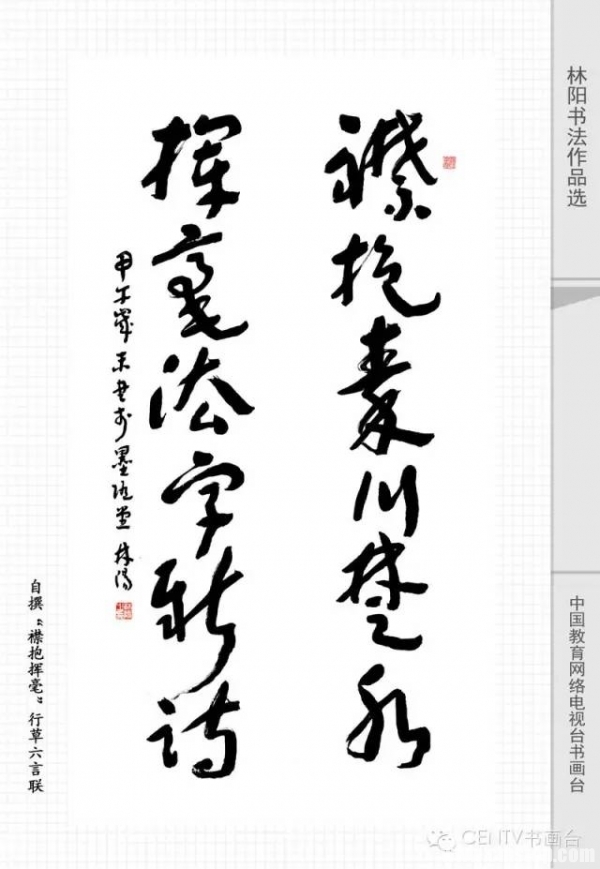 林阳书法作品选
襟抱秦川楚水
揮毫法字新诗
甲午岁末书于墨堂 林阳
自撰“襟抱挥毫”行草六言联
中国教育网络电视台书画台
CENTV书画台